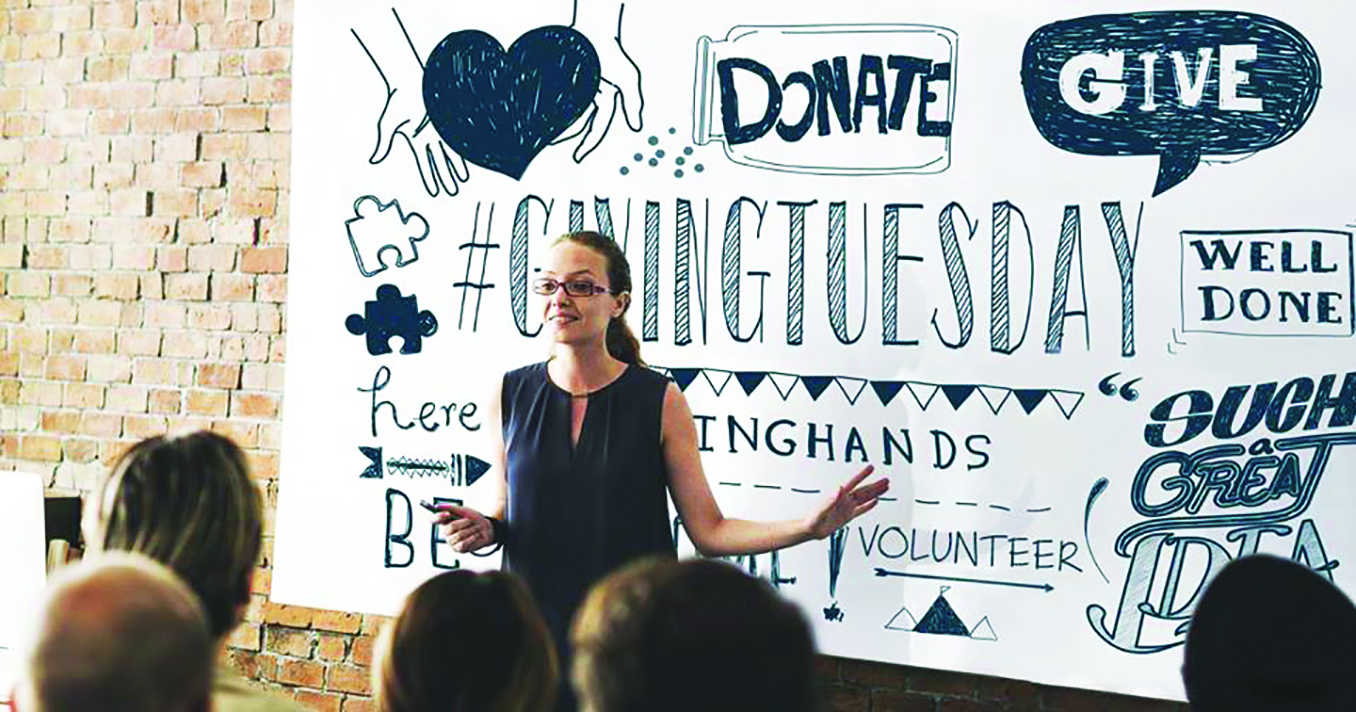 DONATE
GIVE
#GIVINGTUESDAY
WELL
DONE
here
INGHANDS
VOLUNTEER
“SUCH
a
GREAT
IDEA